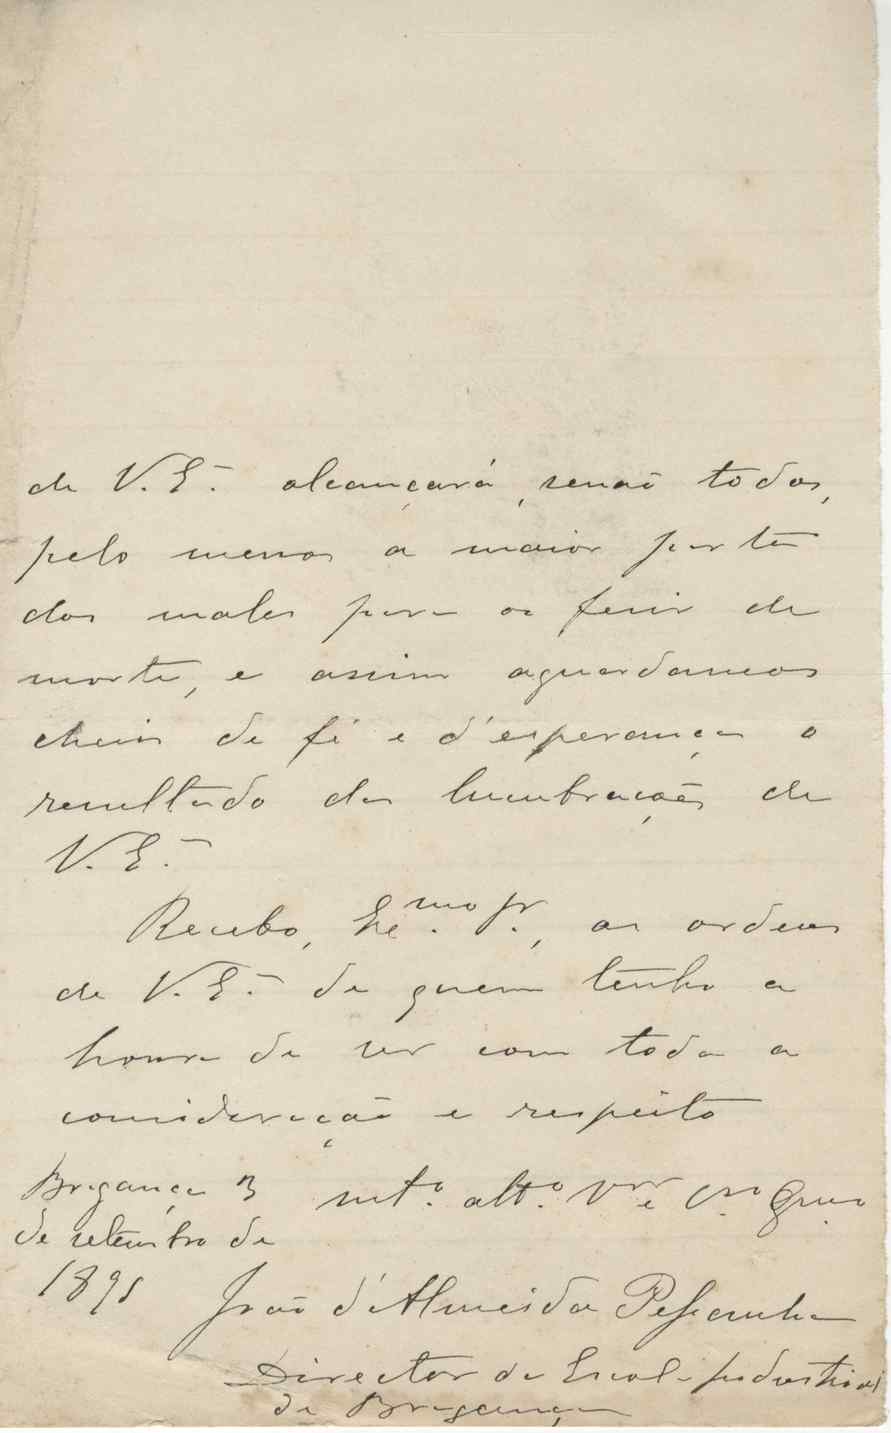 de V. Eª. alcançará, senão todos,
pelo menos a maior parte
dos males para os ferir de
morte, e assim aguardamos
cheios de fé e d'esperança o
resultado das lucubrações de
V. Eª.
Recebo, Exmo. Sr., as ordens
de V. Eª. de quem tenho a
honra de ser com toda a
consideração e respeito
Bragança 3 mtº. attº. Vor e Crº
de setembro de
1891 João d'Almeida Pessanha
Director da Escola Industrial
de Bragança